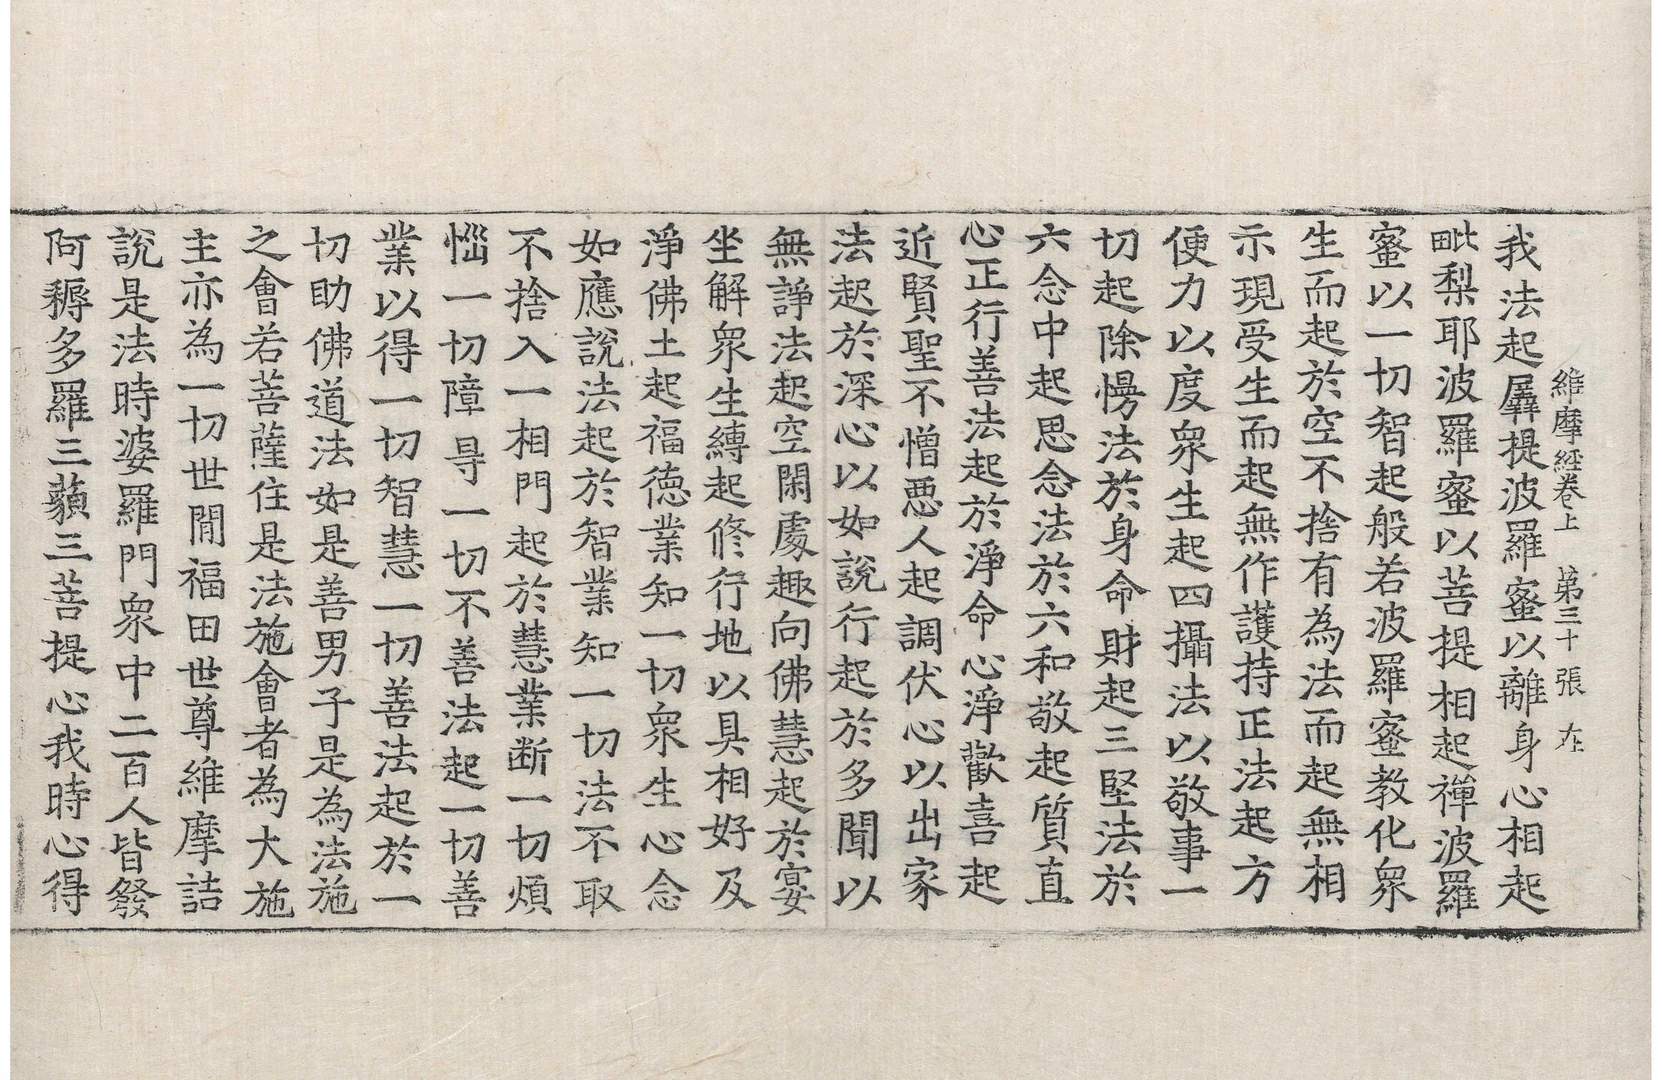 維摩経卷上 第三十張 在
我法起羼提波羅蜜以離身心相起
毗梨耶波羅蜜以菩提相起禪波羅
蜜以一切智起般若波羅蜜教化衆
生而起於空不捨有為法而起無相
示現受生而起無作護持正法起方
便力以度衆生起四攝法以敬事一
切起除慢法於身命財起三堅法於
六念中起思念法於六和敬起質直
心正行善法起於淨命心淨歡喜起
近賢聖不憎悪人起調伏心以出家
法起於深心以如說行起於多聞以
無諍法起空閑處趣向佛慧起於宴
坐解衆生縛起修行地以具相好及
淨佛土起福德業知一切衆生心念
如應說法起於智業知一切法不取
不捨入一相門起於慧業断一切煩
惱一切障㝵一切不善法起一切善
業以得一切智慧一切善法起於一
切助佛道法如是善男子是為法施
之會若菩薩住是法施會者為大施
主亦為一切世間福田世尊維摩詰
說是法時婆羅門衆中二百人皆發
阿耨多羅三藐三菩提心我時心得